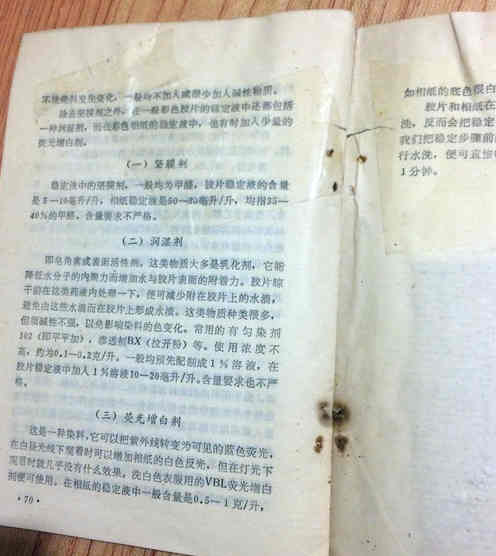 不使染料发生变化,一般均不加入或很少加入碱性物质。
除去坚膜剂之外,在一般彩色胶片的稳定液中还都包括
一种润湿剂,而在彩色相纸的稳定液中,也有时加入少量的
荧光增白剂。
(一)坚膜剂
稳定液中的坚膜剂,一般均为甲醛,胶片稳定液的含量
是5—10毫升/升,相纸稳定液是50—80毫升/升,均指35—
40%的甲醛。含量要求不严格。
(二)润湿剂
即皂角素或表面活性剂。这类物质大多是乳化剂,它能
降低水分子的内聚力而增加水与胶片表面的附着力。胶片晾
干前在这类药液内处理一下,便可减少附在胶片上的水滴,
避免由这些水滴而在胶片上形成水渍。这类物质种类很多,
但须碱性不强,以免影响染料的色变化。常用的有匀染剂
102(即平平加),渗透剂BX(拉开粉)等。使用浓度不
高,约为0.1—0.2克/升。一般均预先配制成1%溶液,在
胶片稳定液中加入1%溶液10—20毫升/升。含量要求也不严
格。
(三)荧光增白剂
这是一种染料,它可以把紫外线转变为可见的蓝色荧光,
在白昼光线下观看时可以增加相纸的白色反光,但在灯光下
观看时就几乎没有什么效果。洗白色衣服用的VBL荧光增白
剂便可使用。在相纸的稳定液中一般含量是0.5—1克/升,
·70·
如相纸的底色很白
胶片和相纸在
洗,反而会把稳定
我们把稳定步骤前
行水洗,便可直接
1分钟。